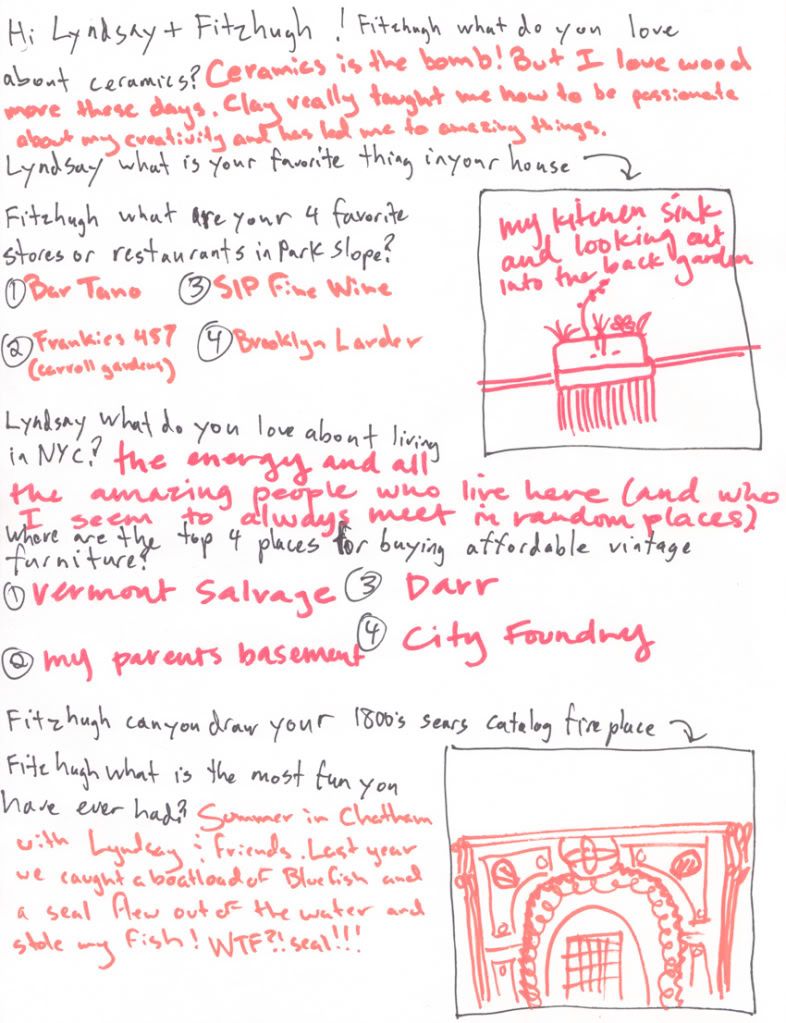 Hi Lyndsay + Fitzhugh ! Fitzhugh what do you love
about ceramics? Ceramics is the bomb! But I love wood
more these days. Clay really taught me how to be passionate
about my creativity and has led me to amazing things.
Lyndsay what is your favorite thing in your house
my kitchen sink
and looking out
into the back garden
Fitzhugh what are your 4 favorite
stores or restaurants in Park Slope?
① Bar Tano ③ SIP Fine Wine
② Frankies 457 ④ Brooklyn Larder
(carroll gardens)
Lyndsay what do you love about living
in NYC? the energy and all
the amazing people who live here (and who
I seem to always meet in random places)
Where are the top 4 places for buying affordable vintage
furniture?
① Vermont Salvage ③ Darr
② my parents basement ④ City Foundry
Fitzhugh can you draw your 1800's sears catalog fireplace
Fitzhugh what is the most fun you
have ever had? Summer in Chatham
with Lyndsay & friends. Last year
we caught a boatload of Bluefish and
a seal flew out of the water and
stole my fish! WTF?! seal!!!